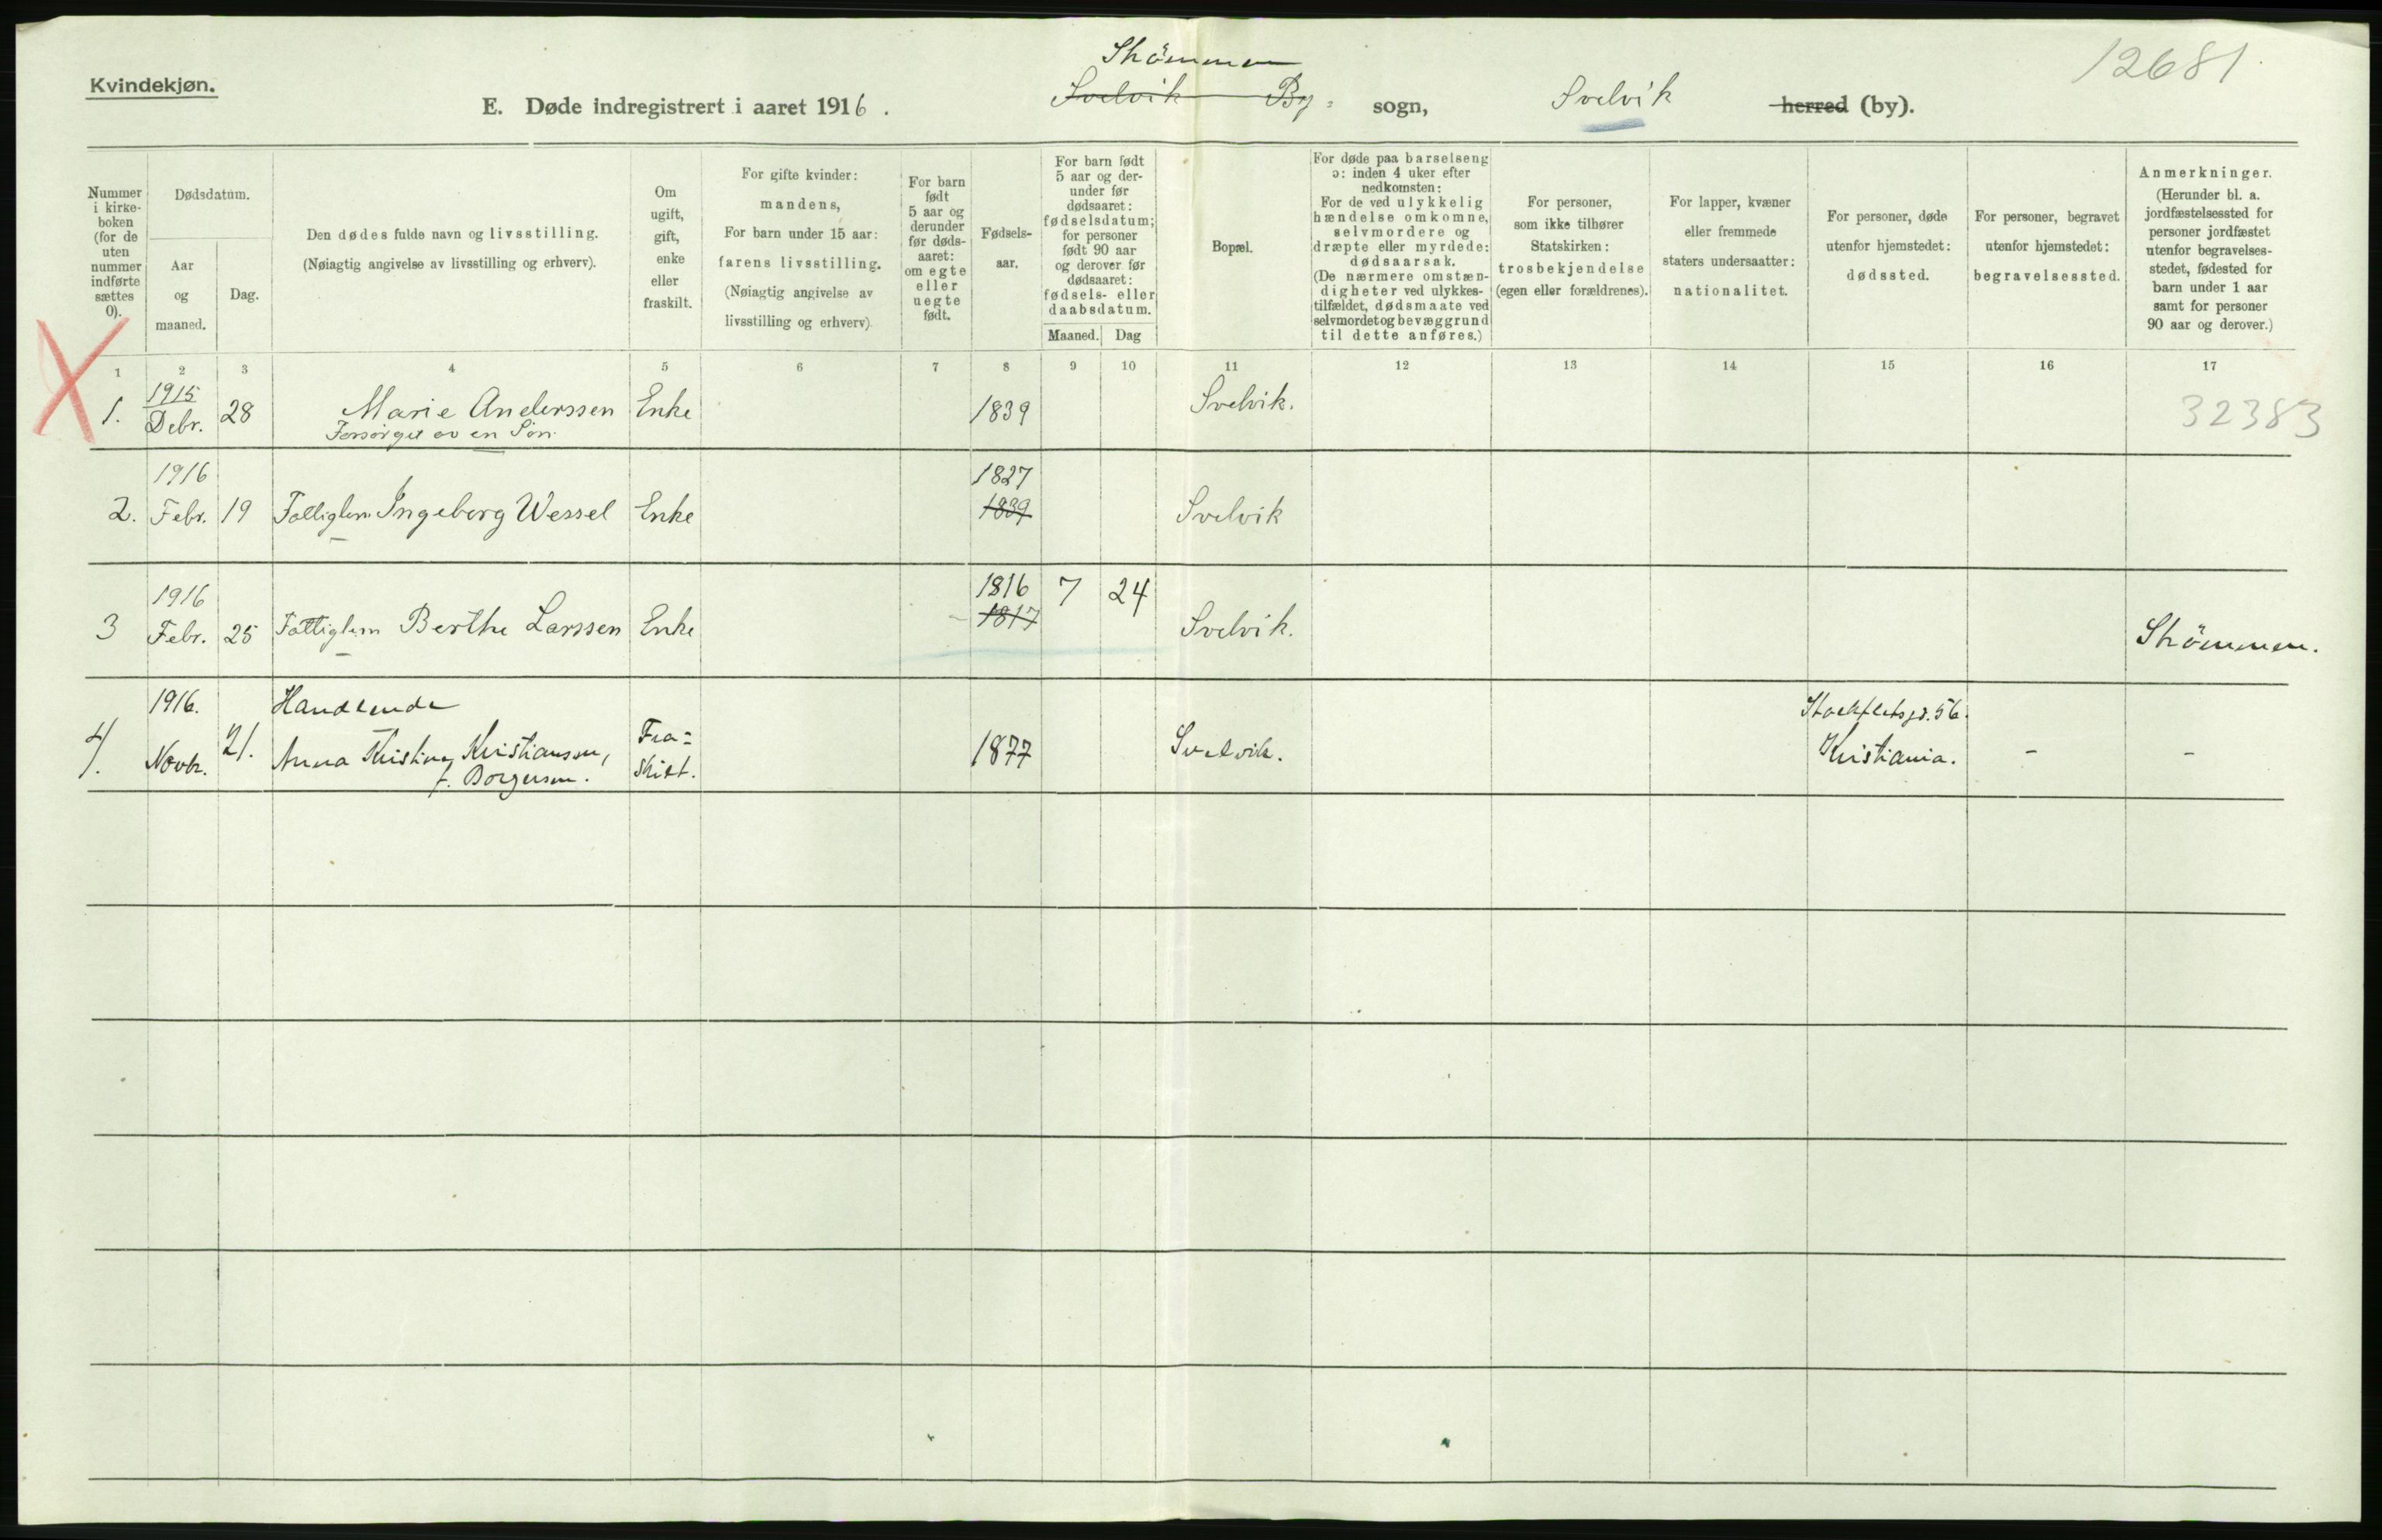 Kvindekjøn.
E. Døde indregistrert i aaret 1916.
Strömmen
Svelvik By= sogn, Svelvik herred (by).
12681.
Nummer i kirke-boken (for de uten nummer indførte sættes 0).
Dødsdatum.
Aar og maaned.
Dag.
Den dødes fulde navn og livsstilling.
(Nøiagtig angivelse av livsstilling og erhverv).
Om ugift, gift, enke eller fraskilt.
For gifte kvinder:
mandens,
For barn under 15 aar:
farens livsstilling.
(Nøiagtig angivelse av
livsstilling og erhverv)
For barn født 5 aar og derunder før døds-aaret: om egte eller uegte født.
Fødsels-aar.
For barn født
5 aar og der-
under før
dødsaaret:
fødselsdatum;
for personer
født 90 aar
og derover før
dødsaaret:
fødsels- eller
daabsdatum.
Maaned. Dag
Bopæl.
For døde paa barselseng
ɔ: inden 4 uker efter
nedkomsten:
For de ved ulykkelig
hændelse omkomne,
selvmordere og
dræpte eller myrdede:
dødsaarsak.
(De nærmere omstæn-
digheter ved ulykkes-
tilfældet, dødsmaate ved
selvmordet og bevæggrund
til dette anføres.)
For personer,
som ikke tilhører
Statskirken:
trosbekjendelse
(egen eller forældrenes).
For lapper, kvæner
eller fremmede
staters undersaatter:
nationalitet.
For personer, døde
utenfor hjemstedet:
dødssted.
For personer, begravet
utenfor hjemstedet:
begravelsessted.
Anmerkninger.
(Herunder bl. a.
jordfæstelsessted for
personer jordfæstet
utenfor begravelses-
stedet, fødested for
barn under 1 aar
samt for personer
90 aar og derover.)
1 2 3 4 5 6 7 8 9 10 11 12 13 14 15 16 17
1. 1915 Debr. 28 Marie Anderssen Enke 1839 Svelvik. 32383
Forsørget av en Søn.
1916 1827
2. Febr. 19 Fattiglem Ingeborg Wessel Enke 1839 Svelvik
1916 1816 7 24
3 Febr. 25 Fattiglem Berthe Larssen Enke 1817 Svelvik. Strömmen.
1916. Handlende Stockfletsgd. 56.
4. Novbr. 21. Anna Kristine Kristianssen, Fra= 1877 Svelvik. Kristiania. - -
f. Borgersen. skilt.